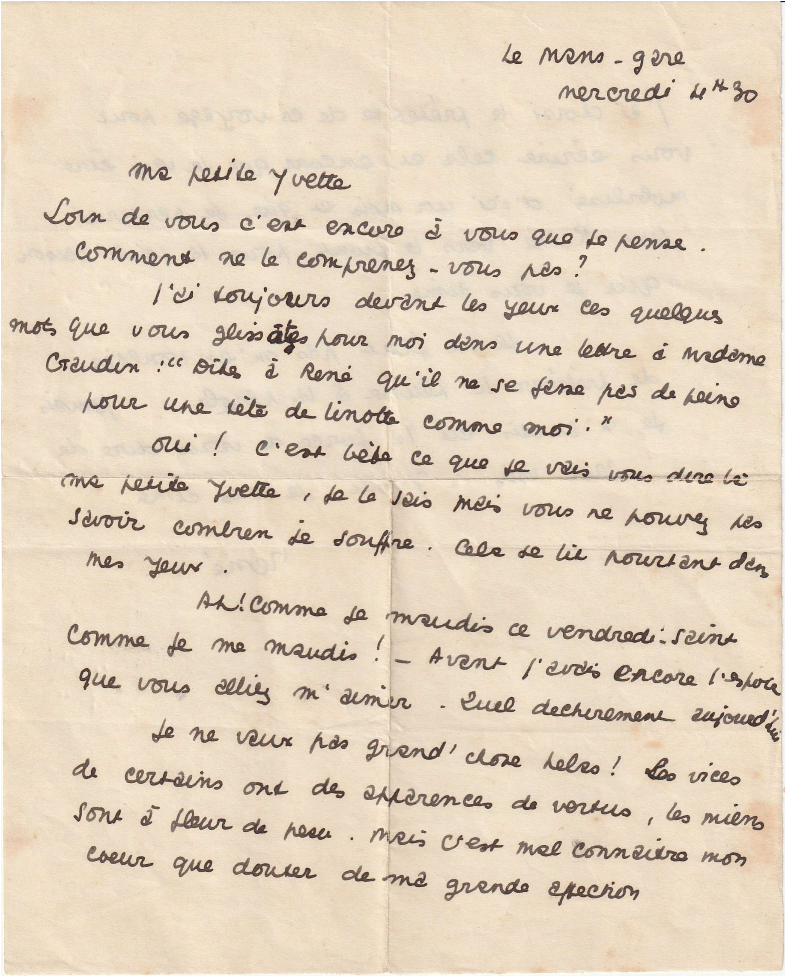 Le Mans - gare
mercredi 4h30
Ma petite Yvette
Loin de vous c'est encore à vous que je pense.
Comment ne le comprenez-vous pas?
J'ai toujours devant les yeux ces quelques
mots que vous glissâtes pour moi dans une lettre à Madame
Gaudin : "Dites à René qu'il ne se fasse pas de peine
pour une tête de linotte comme moi."
Oui ! c'est bête ce que je vais vous dire là
ma petite Yvette, je le sais mais vous ne pouvez pas
savoir combien je souffre. Cela se lit pourtant dans
mes yeux.
Ah! Comme je maudis ce vendredi-saint
comme je me maudis ! - Avant j'avais encore l'espoir
que vous alliez m'aimer. Quel dechirement aujourd'hui
Je ne vaux pas grand'chose helas ! Les vices
de certains ont des apparences de vertus, les miens
sont à fleur de peau. Mais c'est mal connaitre mon
coeur que douter de ma grande affection